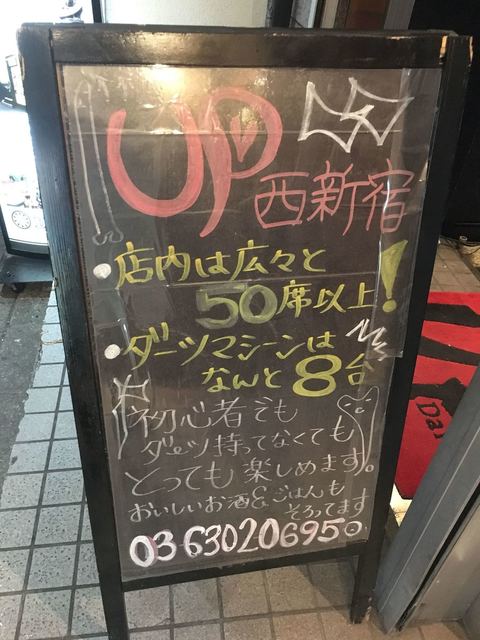 UP
西新宿
・店内は広々と
50席以上!
・ダーツマシーンは
なんと8台
初心者でも
ダーツ持ってなくても
とっても楽しめます。
おいしいお酒&ごはんも
そろってます
03 6302 0695
Da